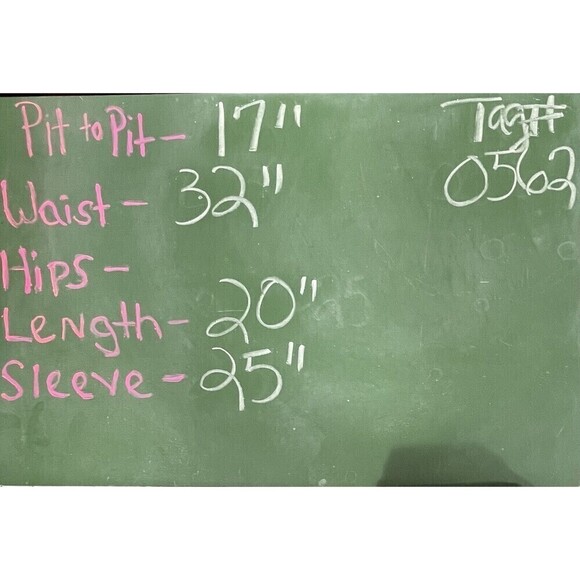 Pit to Pit - 17"
Tag#
0562
Waist - 32"
Hips -
Length - 20"
Sleeve - 25"